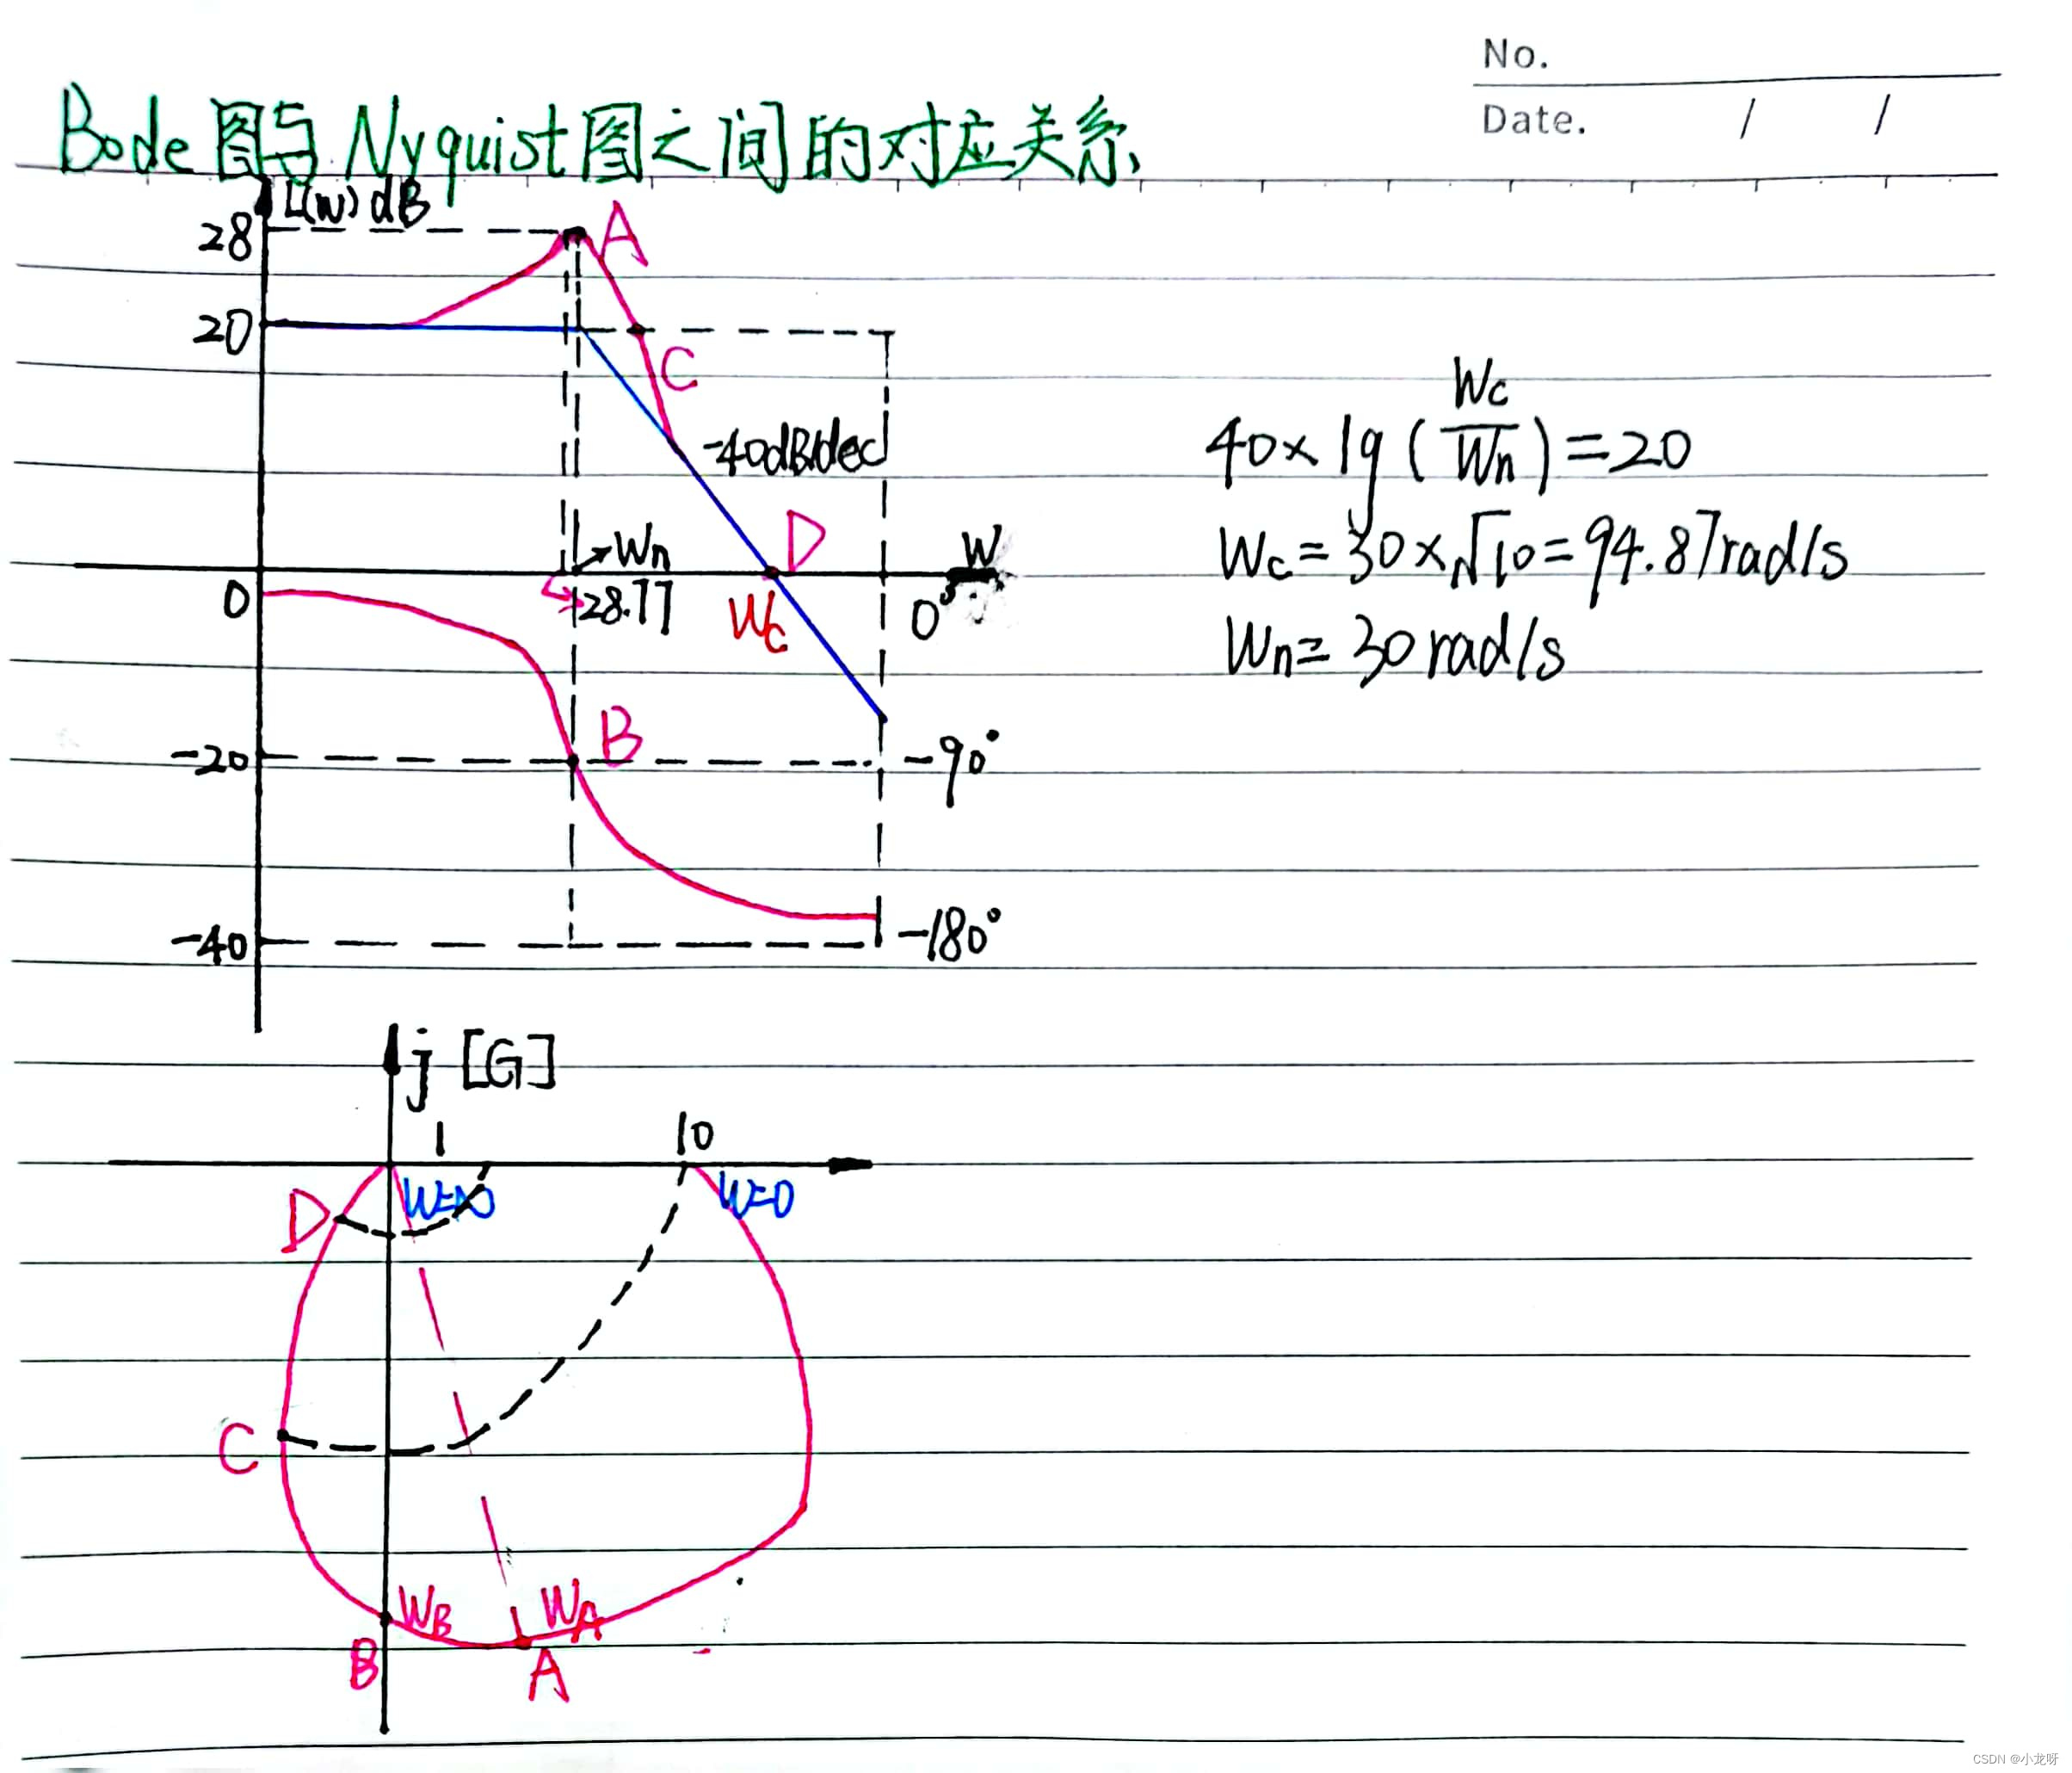 No.
Date. / /
Bode图与Nyquist图之间的对应关系
L(w) dB
28
A
20
C
-40dB/dec
Wn
D
W
0
28.77
Wc
0°
B
-20
-90°
-40
-180°
40×lg(Wc/Wn)=20
Wc=30×√10=94.87rad/s
Wn=30rad/s
j [G]
1
10
D
W=∞
W=0
C
WB
WA
B
A
CSDN @小龙呀